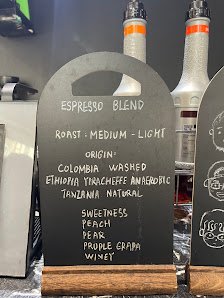 ESPRESSO BLEND
ROAST: MEDIUM - LIGHT
ORIGIN:
COLOMBIA WASHED
ETHIOPIA YIRACHEFFE ANAEROBIC
TANZANIA NATURAL
SWEETNESS
PEACH
PEAR
PRUPLE GRAPA
WINEY